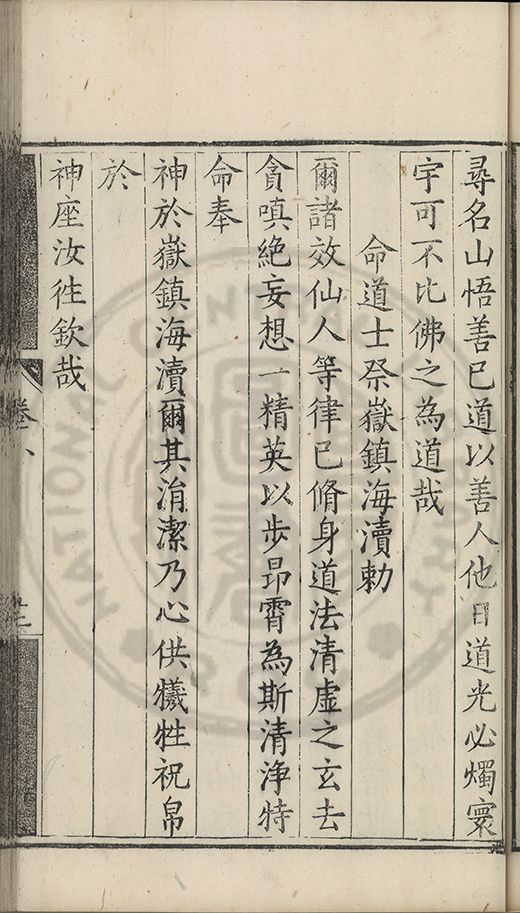 尋名山悟善已道以善人他日道光必燭寰
宇可不比佛之為道哉
命道士祭嶽鎮海瀆勅
爾諸效仙人等律已脩身道法清虛之玄去
貪嗔絶妄想一精英以步昂霄為斯清淨特
命奉
神於嶽鎮海瀆爾其涓潔乃心供犧牲祝帛
於
神座汝徃欽哉
卷八